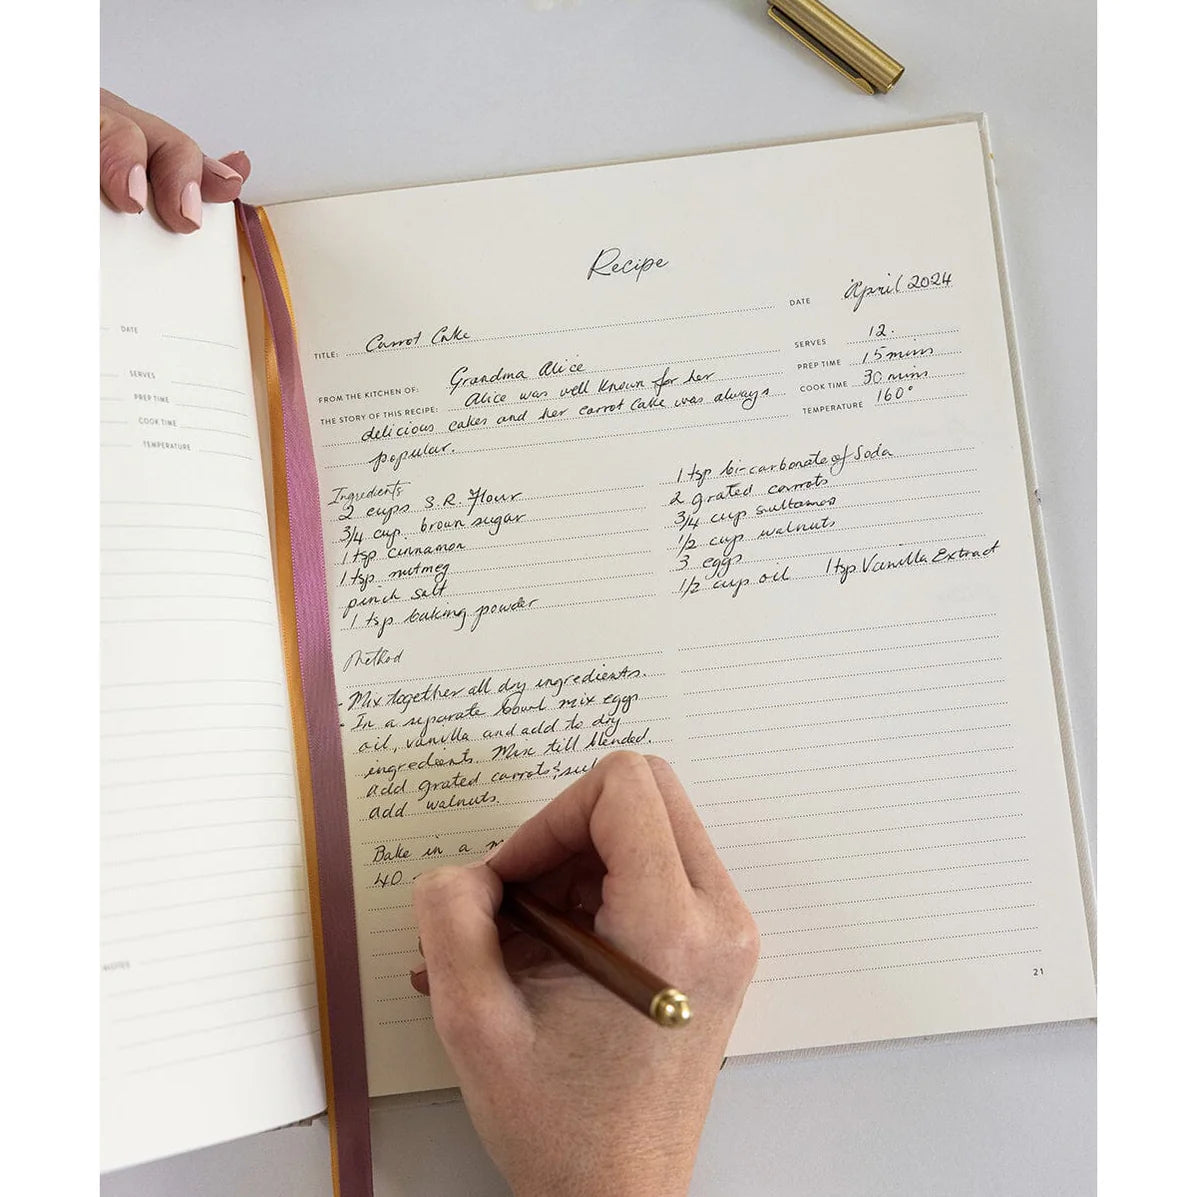 Recipe
DATE April 2024
TITLE: Carrot Cake
SERVES 12.
FROM THE KITCHEN OF: Grandma Alice
PREP TIME 15 mins
THE STORY OF THIS RECIPE: Alice was well known for her
COOK TIME 30 mins
delicious cakes and her carrot cake was always
TEMPERATURE 160°
popular.
Ingredients
2 cups S.R. Flour
3/4 cup. brown sugar
1 tsp cinnamon
1 tsp nutmeg
pinch salt
1 tsp baking powder
1 tsp bi-carbonate of Soda
2 grated carrots
3/4 cup sultanas
1/2 cup walnuts
3 eggs
1/2 cup oil 1 tsp Vanilla Extract
Method
- Mix together all dry ingredients.
- In a separate bowl mix eggs
oil, vanilla and add to dry
ingredients. Mix till blended.
add grated carrots &
add walnuts.
Bake in a
40
21
DATE
SERVES
PREP TIME
COOK TIME
TEMPERATURE
NOTES